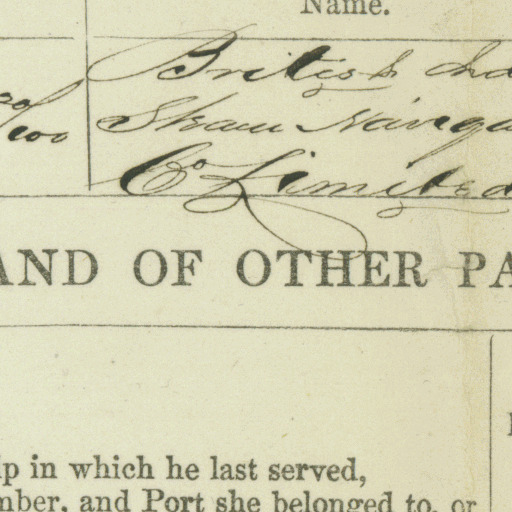 Name.
British Ind
20/100
Steam Naviga
Co Limited
AND OF OTHER PA
ip in which he last served,
mber, and Port she belonged to, or